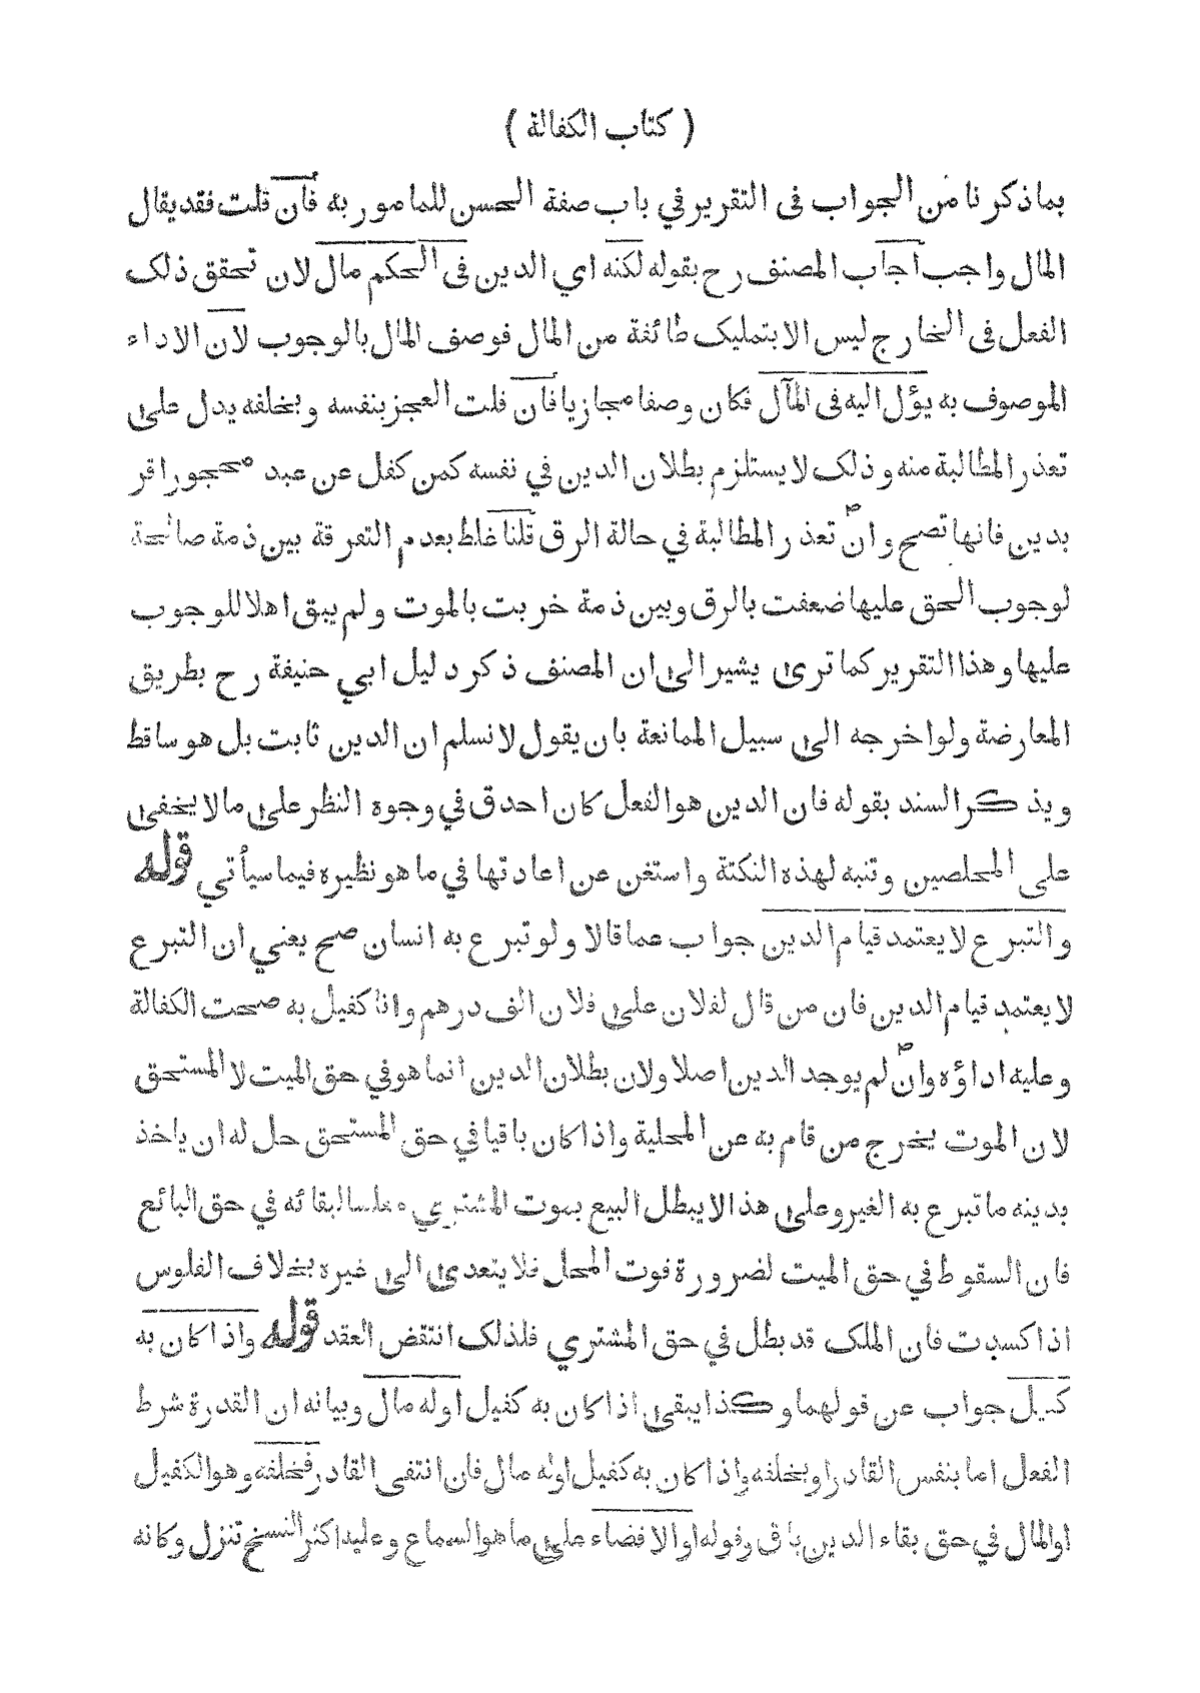 ( كتاب الكفالة )
بما ذكرنا من الجواب فى التقرير في باب صفة الحسن للمامور به فان قلت فقد يقال
المال واجب اجاب المصنف رح بقوله لكنه اي الدين فى الحكم مال لان تحقق ذلك
الفعل فى الخارج ليس الا بتمليك طائفة من المال فوصف المال بالوجوب لان الاداء
الموصوف به يؤل اليه فى المآل فكان وصفا مجازيا فان قلت العجز بنفسه وبخلفه يدل على
تعذر المطالبة منه وذلك لا يستلزم بطلان الدين في نفسه كمن كفل عن عبد محجور اقر
بدين فانها تصح وان تعذر المطالبة في حالة الرق قلنا غلط بعدم التفرقة بين ذمة صالحة
لوجوب الحق عليها ضعفت بالرق وبين ذمة خربت بالموت ولم يبق اهلا للوجوب
عليها وهذا التقرير كما ترى يشير الى ان المصنف ذكر دليل ابي حنيفة رح بطريق
المعارضة ولو اخرجه الى سبيل الممانعة بان يقول لا نسلم ان الدين ثابت بل هو ساقط
ويذكر السند بقوله فان الدين هو الفعل كان احدق في وجوه النظر على ما لا يخفى
على المحلصين وتنبه لهذه النكتة واستغن عن اعادتها في ما هو نظيره فيما سيأتي قوله
والتبرع لا يعتمد قيام الدين جواب عما قالا ولو تبرع به انسان صح يعني ان التبرع
لا يعتمد قيام الدين فان من قال لفلان على فلان الف درهم وانا كفيل به صحت الكفالة
وعليه اداؤه وان لم يوجد الدين اصلا ولان بطلان الدين انما هو في حق الميت لا المستحق
لان الموت يخرج من قام به عن المحلية واذا كان باقيا في حق المستحق حل له ان ياخذ
بدينه ما تبرع به الغير وعلى هذا لا يبطل البيع بموت المشتري مفلسا لبقائه في حق البائع
فان السقوط في حق الميت لضرورة فوت المحل فلا يتعدى الى غيره بخلاف الفلوس
اذا كسدت فان الملك قد بطل في حق المشتري فلذلك انتقض العقد قوله واذا كان به
كفيل جواب عن قولهما وكذا يبقى اذا كان به كفيل او له مال وبيانه ان القدرة شرط
الفعل اما بنفس القادر او بخلفه واذا كان به كفيل او له مال فان انتفى القادر فخلفه وهو الكفيل
او المال في حق بقاء الدين باق وقوله او الافضاء على ما هو السماع وعليه اكثر النسخ تنزل وكانه